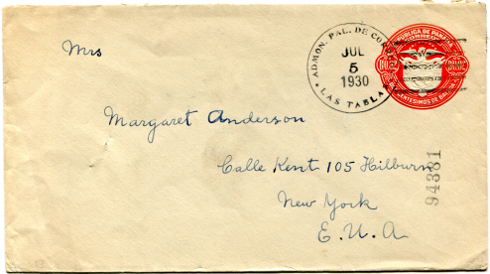 Mrs
ADMON. PAL. DE COR
JUL
5
1930
LAS TABLA
REPUBLICA DE PANAMA
CORREOS
CENTESIMOS DE BALBOA
Margaret Anderson
Calle Kent 105 Hilburn
New York
E.U.A
94381